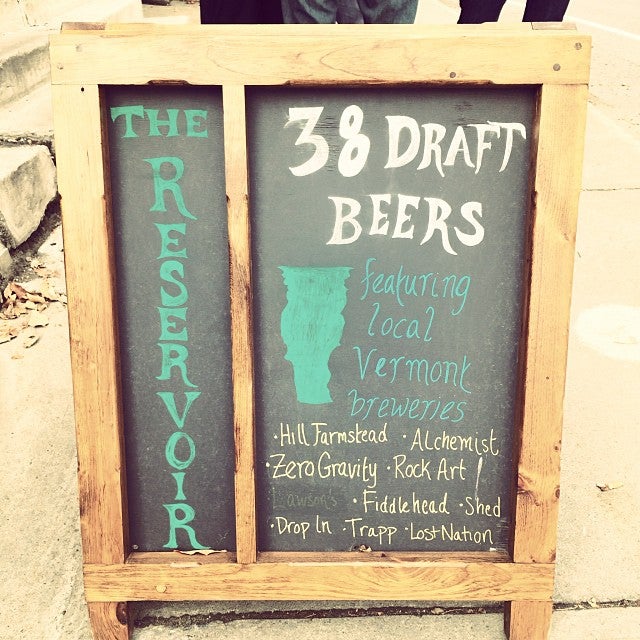 THE
RESERVOIR
38 DRAFT
BEERS
featuring
local
Vermont
breweries
·Hill Farmstead ·Alchemist
·Zero Gravity ·Rock Art
Lawson's ·Fiddlehead ·Shed
·Drop In ·Trapp ·Lost Nation